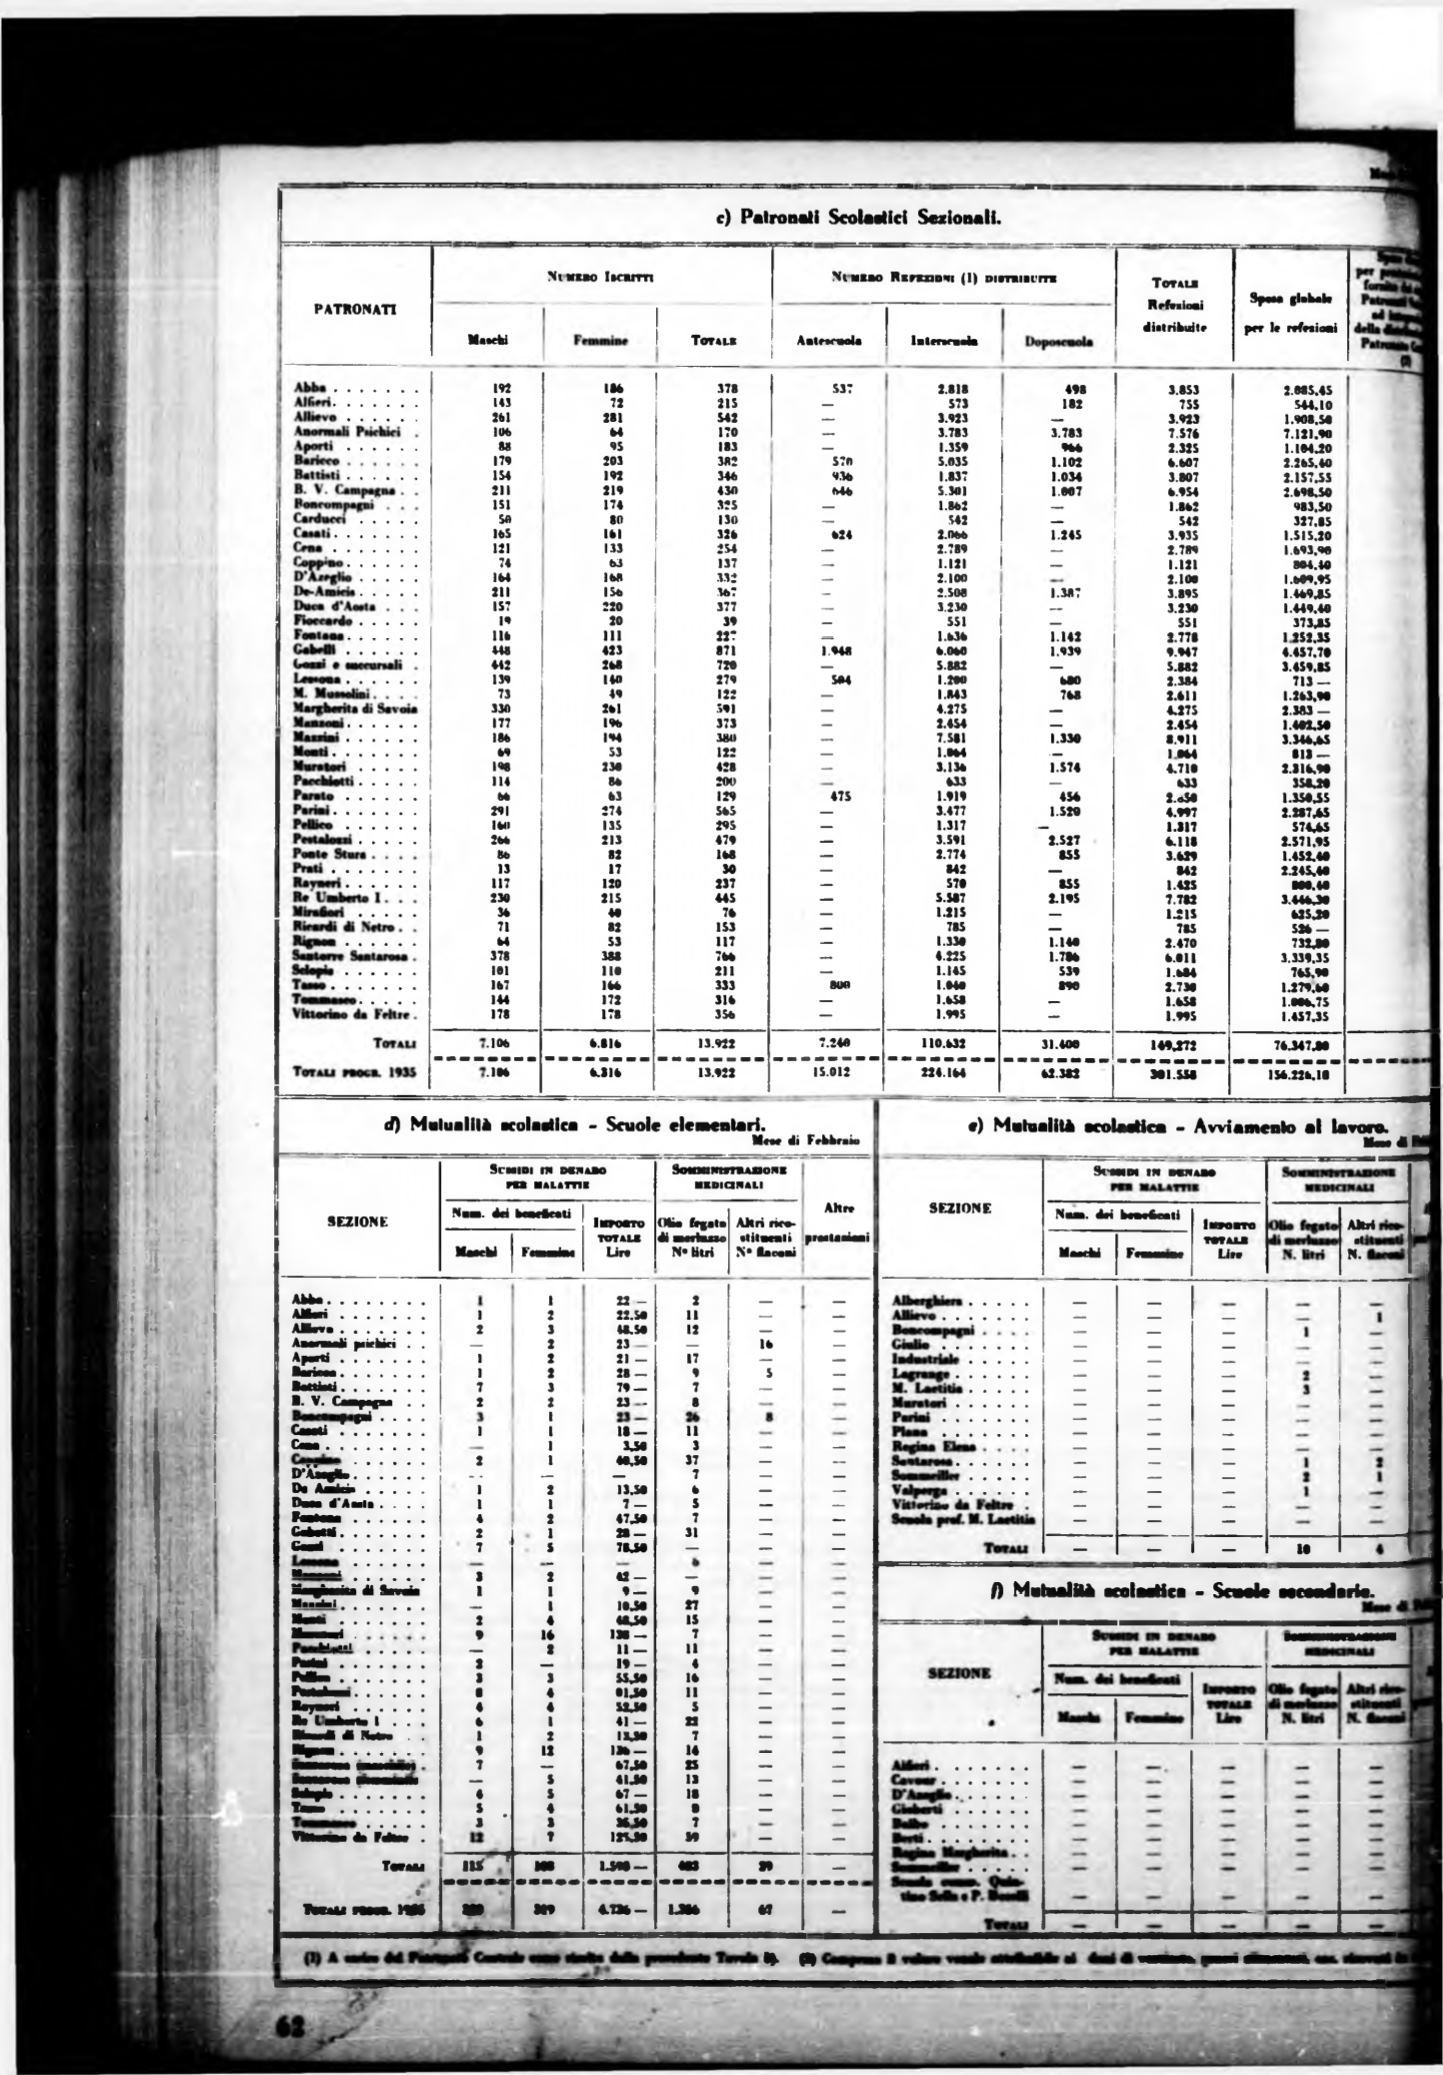 c) Patronati Scolastici Sezionali.
PATRONATI
NUMERO ISCRITTI
NUMERO REFEZIONI (1) DISTRIBUITE
TOTALE
Refezioni
distribuite
Spesa globale
per le refezioni
Maschi Femmine TOTALE Antescuola Interscuola Doposcuola
Abba 192 186 378 537 2.818 498 3.853 2.085,45
Alfieri 143 72 215 — 573 182 755 544,10
Allievo 261 281 542 — 3.923 — 3.923 1.908,50
Anormali Psichici 106 64 170 — 3.783 3.783 7.576 7.121,90
Aporti 88 95 183 — 1.359 966 2.325 1.104,20
Baricco 179 203 382 570 5.035 1.102 6.607 2.265,60
Battisti 154 192 346 936 1.837 1.034 3.807 2.157,55
B. V. Campagna 211 219 430 646 5.301 1.007 6.954 2.698,50
Boncompagni 151 174 325 — 1.862 — 1.862 983,50
Carducci 50 80 130 — 542 — 542 327,85
Casati 165 161 326 624 2.066 1.245 3.935 1.515,20
Cena 121 133 254 — 2.789 — 2.789 1.693,90
Coppino 74 63 137 — 1.121 — 1.121 804,40
D'Azeglio 164 168 332 — 2.100 — 2.100 1.609,95
De-Amicis 211 156 367 — 2.508 1.387 3.895 1.469,85
Duca d'Aosta 157 220 377 — 3.230 — 3.230 1.449,40
Fioccardo 19 20 39 — 551 — 551 373,85
Fontana 116 111 227 — 1.636 1.142 2.778 1.252,35
Gabelli 448 423 871 1.948 6.060 1.939 9.947 4.457,70
Gozzi e succursali 442 268 720 — 5.882 — 5.882 3.459,85
Lessona 139 140 279 504 1.200 680 2.384 713 —
M. Mussolini 73 49 122 — 1.843 768 2.611 1.263,90
Margherita di Savoia 330 261 591 — 4.275 — 4.275 2.383 —
Manzoni 177 196 373 — 2.454 — 2.454 1.402,50
Mazzini 186 194 380 — 7.581 1.330 8.911 3.346,65
Monti 69 53 122 — 1.064 — 1.064 813 —
Muratori 198 230 428 — 3.136 1.574 4.710 2.316,90
Pacchiotti 114 86 200 — 633 — 633 358,20
Parato 66 63 129 475 1.919 456 2.850 1.350,55
Parini 291 274 565 — 3.477 1.520 4.997 2.287,65
Pellico 160 135 295 — 1.317 — 1.317 574,65
Pestalozzi 266 213 479 — 3.591 2.527 6.118 2.571,95
Ponte Stura 86 82 168 — 2.774 855 3.629 1.452,40
Prati 13 17 30 — 842 — 842 2.245,40
Rayneri 117 120 237 — 570 855 1.425 800,40
Re Umberto I 230 215 445 — 5.587 2.195 7.782 3.446,30
Mirafiori 36 40 76 — 1.215 — 1.215 625,20
Ricardi di Netro 71 82 153 — 785 — 785 526 —
Rignon 64 53 117 — 1.330 1.140 2.470 732,80
Santorre Santarosa 378 388 766 — 4.225 1.786 6.011 3.339,35
Sclopis 101 110 211 — 1.145 539 1.684 765,90
Tasso 167 166 333 800 1.040 890 2.730 1.279,60
Tommaseo 144 172 316 — 1.658 — 1.658 1.006,75
Vittorino da Feltre 178 178 356 — 1.995 — 1.995 1.457,35
TOTALI 7.106 6.816 13.922 7.240 110.632 31.400 149,272 76.347,80
TOTALI PROGR. 1935 7.106 6.816 13.922 15.012 224.164 62.382 301.558 156.226,10
d) Mutualità scolastica - Scuole elementari.
Mese di Febbraio
SEZIONE
SUSSIDI IN DENARO
PER MALATTIE
SOMMINISTRAZIONE
MEDICINALI
Altre
prestazioni
Num. dei beneficati
IMPORTO
TOTALE
Lire
Olio fegato
di merluzzo
N° litri
Altri rico-
stituenti
N° flaconi
Maschi Femmine
Abba 1 1 22 — 2 — —
Alfieri 1 2 22.50 11 — —
Allievo 2 3 48.50 12 — —
Anormali psichici — 2 23 — — 16 —
Aporti 1 2 21 — 17 — —
Baricco 1 2 28 — 9 5 —
Battisti 7 3 79 — 7 — —
B. V. Campagna 2 2 23 — 8 — —
Boncompagni 3 1 23 — 26 8 —
Casati 1 1 18 — 11 — —
Cena — 1 3,50 3 — —
Coppino 2 1 60,50 37 — —
D'Azeglio — — — 7 — —
De Amicis 1 2 13,50 6 — —
Duca d'Aosta 1 1 7 — 5 — —
Fontana 4 2 47,50 7 — —
2 1 28 — 31 — —
Gozzi 7 5 78,50 — — —
Lessona — — — 6 — —
Manzoni 3 2 42 — — — —
Margherita di Savoia 1 1 9 — 9 — —
— 1 10,50 27 — —
Monti 2 4 48,50 15 — —
Muratori 9 16 138 — 7 — —
— 2 11 — 11 — —
Parini 2 — 19 — 4 — —
Pellico 3 3 55,50 16 — —
Pestalozzi 8 4 11 — —
Rayneri 4 4 52,50 5 — —
Re Umberto I 6 1 41 — 22 — —
Ricardi di Netro 1 2 13,50 7 — —
Rignon 9 12 136 — 14 — —
7 — 67,50 25 — —
— 5 41,50 13 — —
Sclopis 4 5 67 — 18 — —
Tasso 5 4 61,50 8 — —
Tommaseo 3 3 36,50 7 — —
Vittorino da Feltre 12 7 125,50 — —
TOTALI 115 —
TOTALI PROGR. 67 —
e) Mutualità scolastica - Avviamento al lavoro.
Mese di
SEZIONE
SUSSIDI IN DENARO
PER MALATTIE
SOMMINISTRAZIONE
MEDICINALI
Num. dei beneficati
IMPORTO
TOTALE
Lire
Olio fegato
di merluzzo
N. litri
Altri rico-
stituenti
N. flaconi
Maschi Femmine
Alberghiera — — — — —
Allievo — — — — 1
Boncompagni — — — 1 —
Giulio — — — — —
Industriale — — — — —
Lagrange — — — 2 —
M. Laetitia — — — 3 —
Muratori — — — — —
Parini — — — — —
Plana — — — — —
Regina Elena — — — — —
Santarosa — — — 1 2
Sommeiller — — — 2 1
Valperga — — — 1 —
Vittorino da Feltre — — — — —
Scuola prof. M. Laetitia — — — — —
TOTALI — — — 10 4
f) Mutualità scolastica - Scuole secondarie.
Mese di
SEZIONE
SUSSIDI IN DENARO
PER MALATTIE
SOMMINISTRAZIONE
MEDICINALI
Num. dei beneficati
IMPORTO
TOTALE
Lire
Olio fegato
di merluzzo
N. litri
Altri rico-
stituenti
N. flaconi
Maschi Femmine
Alfieri — — — — —
Cavour — — — — —
D'Azeglio — — — — —
Gioberti — — — — —
Balbo — — — — —
Berti — — — — —
Regina Margherita — — — — —
Sommeiller — — — — —
Scuola comm. Quin-
tino Sella e P. Boselli — — — — —
TOTALI — — — — —
62